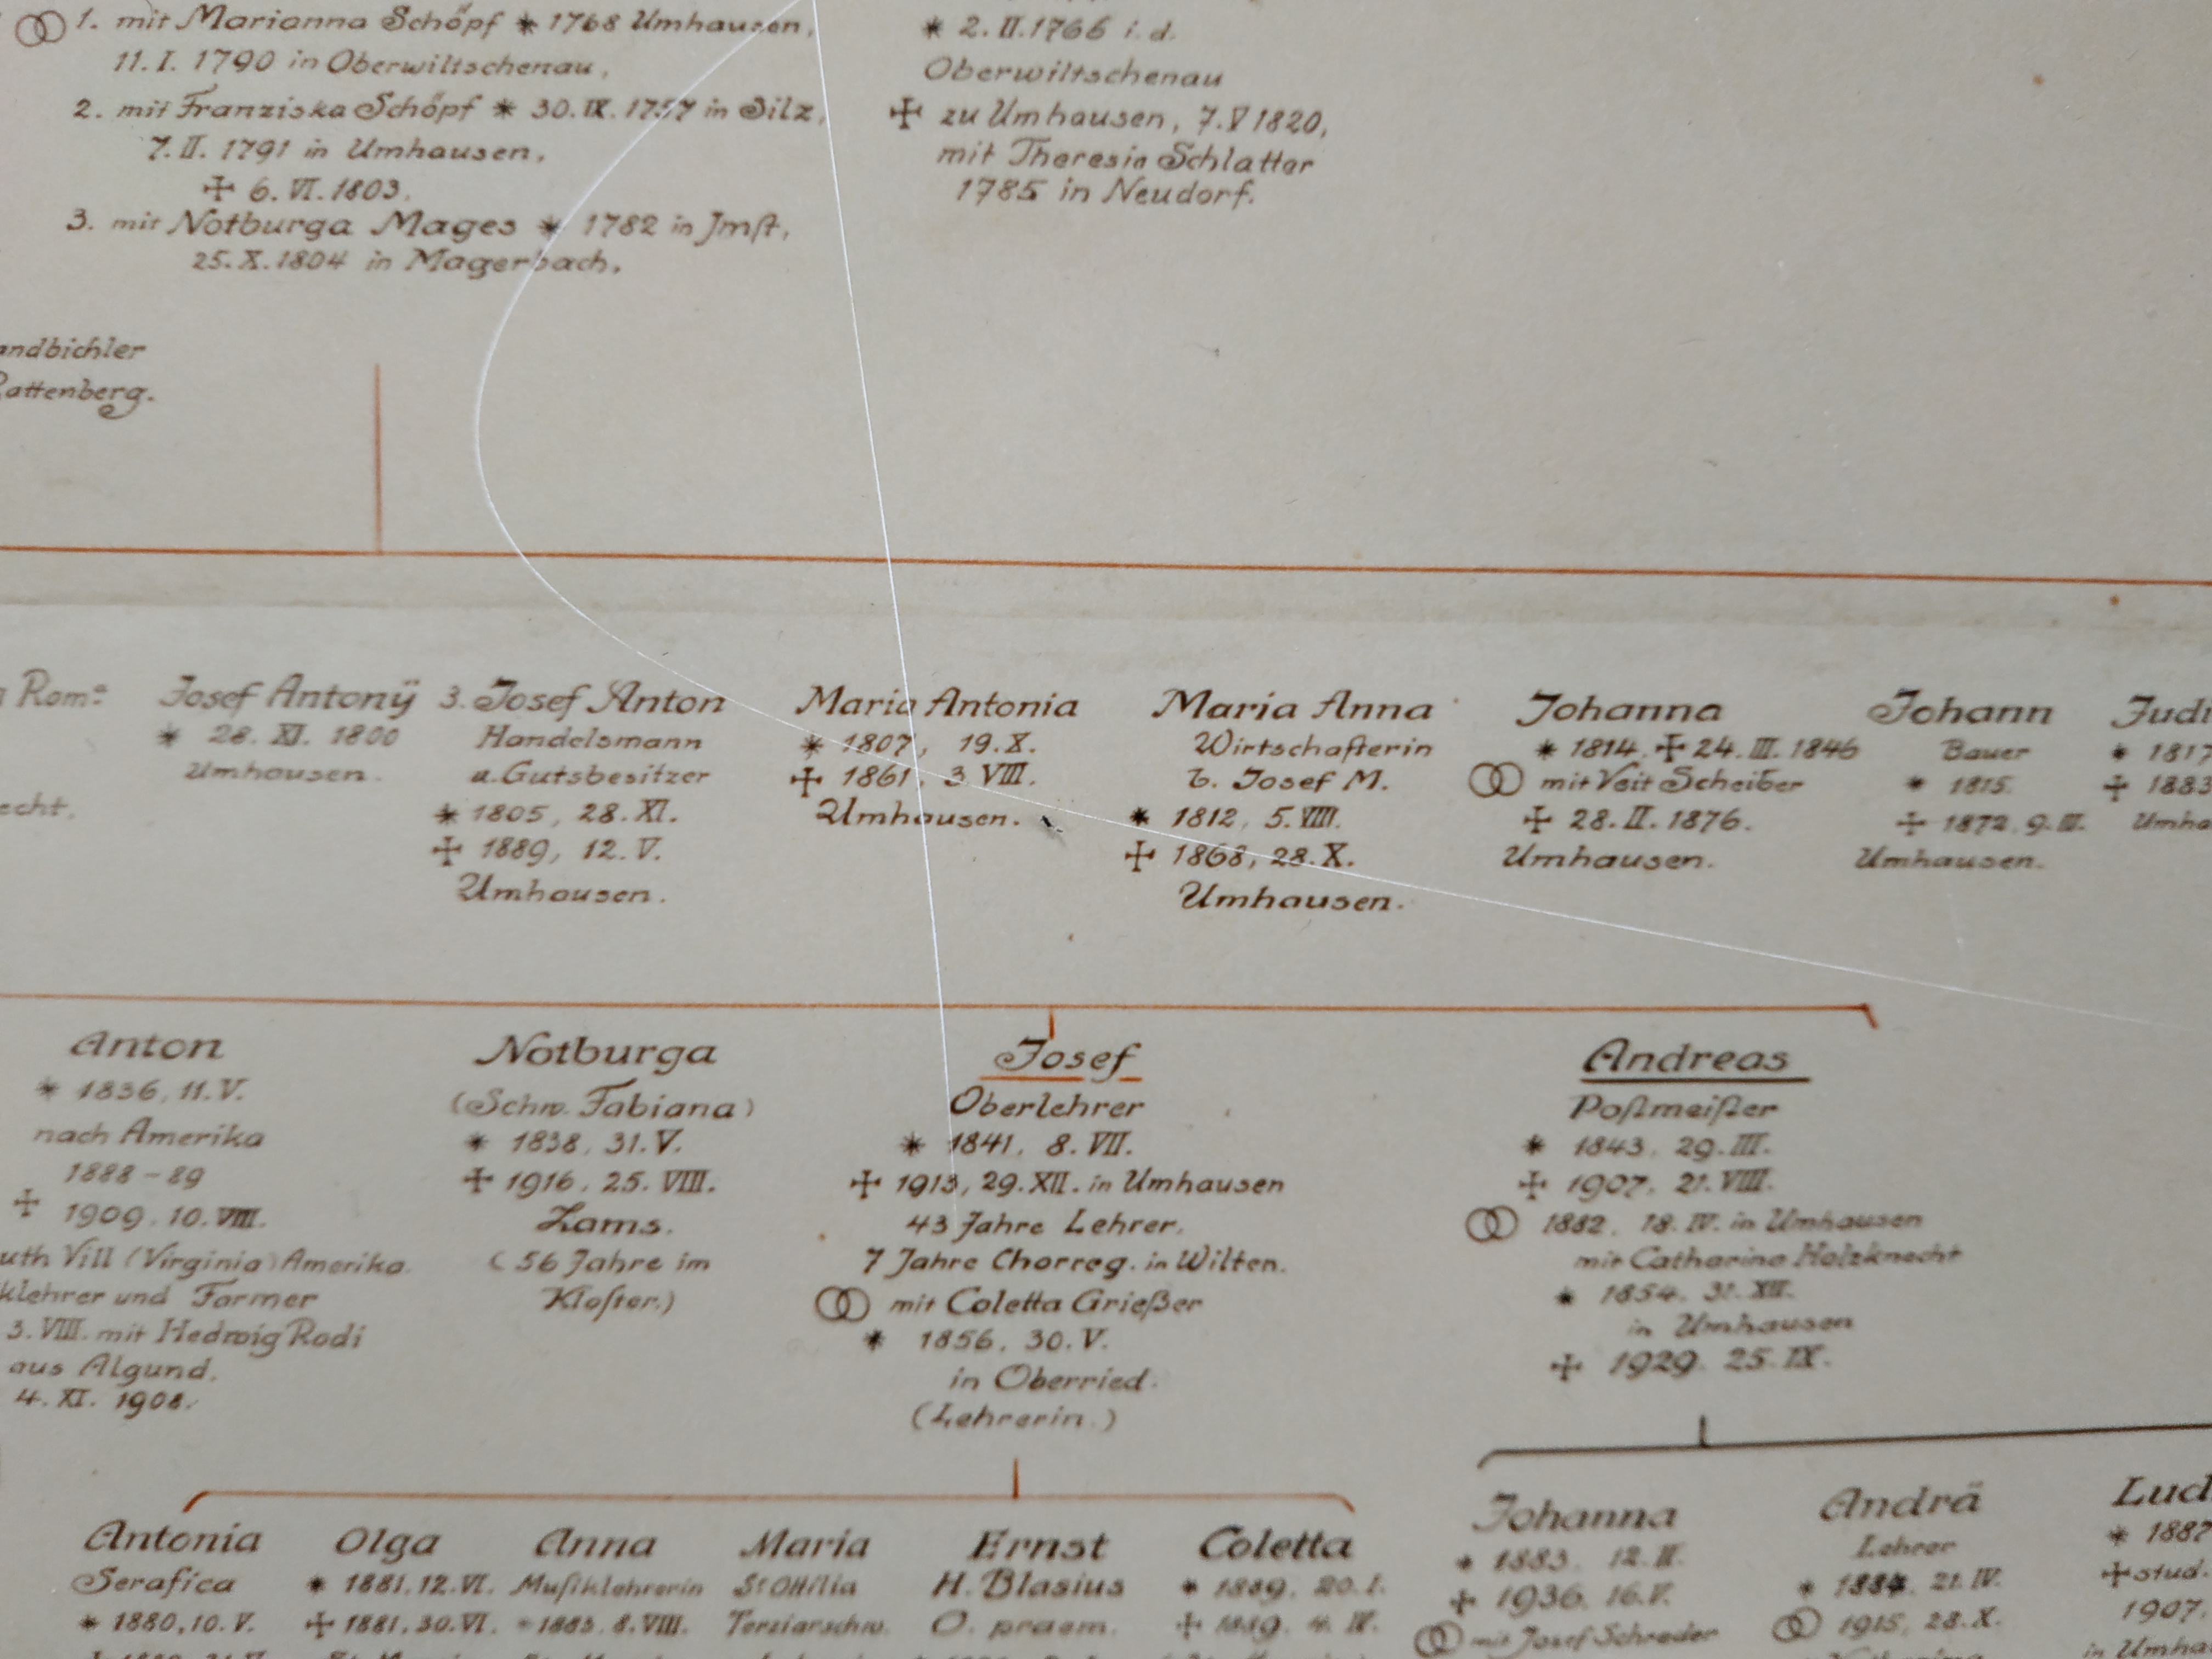 1. mit Marianna Schöpf * 1768 Umhausen,
11. I. 1790 in Oberwiltschenau,
2. mit Franziska Schöpf * 30. IX. 1757 in Silz,
7. II. 1791 in Umhausen,
✠ 6. VI. 1803.
3. mit Notburga Mages * 1782 in Jmst,
25. X. 1804 in Magerbach,
* 2. II. 1766 i. d.
Oberwiltschenau
✠ zu Umhausen, 7. V 1820,
mit Theresia Schlatter
1785 in Neudorf.
andbichler
Rattenberg.
Josef Antonÿ
* 28. XI. 1800
Umhausen.
echt.
3. Josef Anton
Handelsmann
u. Gutsbesitzer
* 1805, 28. XI.
✠ 1889, 12. V.
Umhausen.
Maria Antonia
* 1807, 19. X.
✠ 1861, 3. VIII.
Umhausen.
Maria Anna
Wirtschafterin
b. Josef M.
* 1812, 5. VIII.
✠ 1868, 28. X.
Umhausen.
Johanna
* 1814, ✠ 24. III. 1846
⚭ mit Veit Scheiber
✠ 28. II. 1876.
Umhausen.
Johann
Bauer
* 1815.
✠ 1872. 9. III.
Umhausen.
Judi
* 1817
✠ 1883
Umha
Anton
* 1836, 11. V.
nach Amerika
1888 – 89
✠ 1909. 10. VIII.
uth Vill (Virginia) Amerika.
klehrer und Farmer
3. VIII. mit Hedwig Rodi
aus Algund.
4. XI. 1908.
Notburga
(Schw. Fabiana)
* 1838, 31. V.
✠ 1916, 25. VIII.
Zams.
(56 Jahre im
Kloster.)
Josef
Oberlehrer
* 1841, 8. VII.
✠ 1913, 29. XII. in Umhausen
43 Jahre Lehrer.
7 Jahre Chorreg. in Wilten.
⚭ mit Coletta Grießer
* 1856, 30. V.
in Oberried.
(Lehrerin.)
Andreas
Postmeister
* 1843, 29. III.
✠ 1907, 21. VIII.
⚭ 1882, 18. IV. in Umhausen
mit Catharina Holzknecht
* 1854. 31. XII.
in Umhausen
✠ 1929. 25. IX.
Antonia
Serafica
* 1880, 10. V.
Olga
* 1881. 12. VI.
✠ 1881. 30. VI.
Anna
Musiklehrerin
* 1883. 8. VIII.
Maria
St Ottilia
Terziarschw.
Ernst
H. Blasius
O. praem.
Coletta
* 1889. 20. I.
✠ 1889. 4. IV.
Johanna
* 1883. 12. II.
✠ 1936. 16. V.
⚭ mit Josef Schreder
Andrä
Lehrer
* 1884. 21. IV.
⚭ 1915, 28. X.
Lud
* 1887
✠ stud.
1907.
in Umha